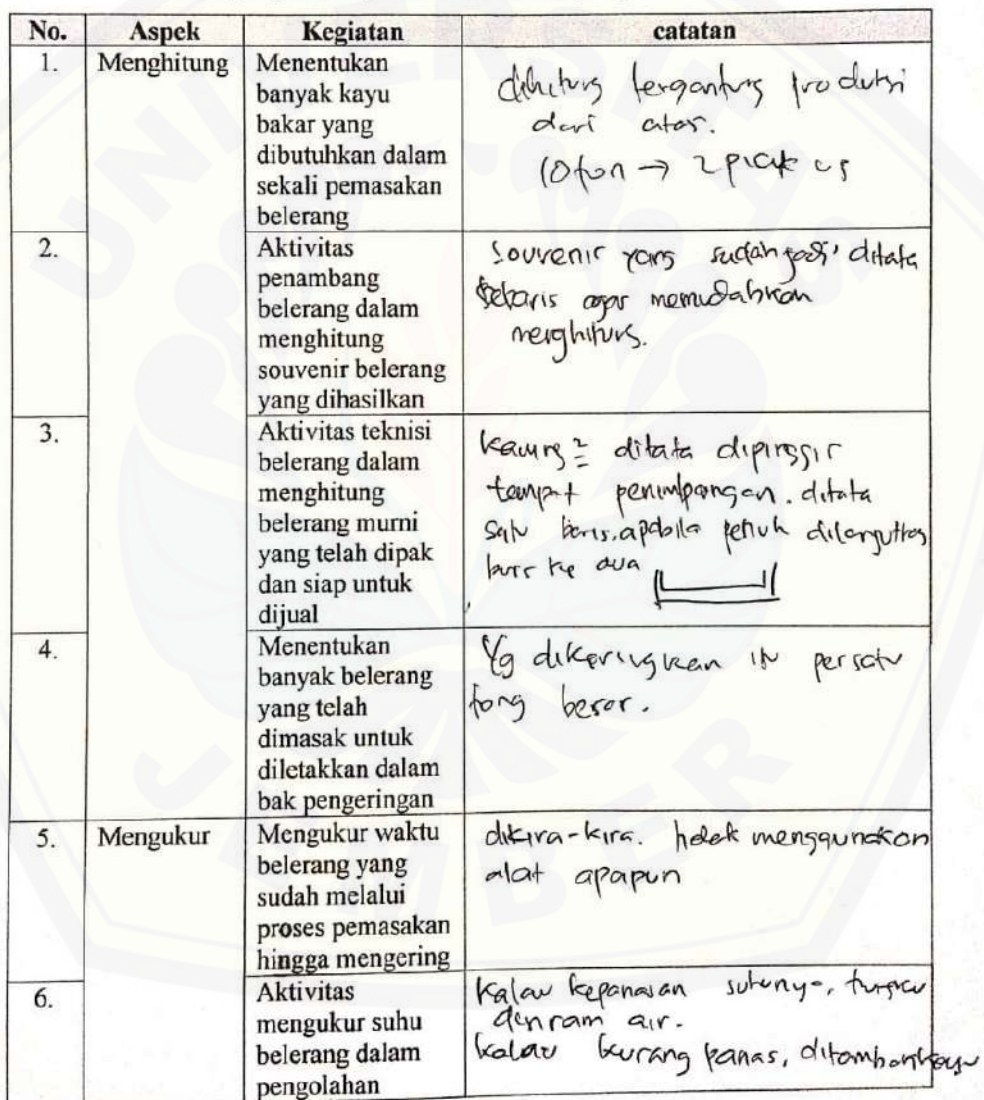 No. Aspek Kegiatan catatan
1. Menghitung Menentukan
banyak kayu
bakar yang
dibutuhkan dalam
sekali pemasakan
belerang
dihitung tergantung produksi
dari atas.
10 ton → 2 pickup
2. Aktivitas
penambang
belerang dalam
menghitung
souvenir belerang
yang dihasilkan
Souvenir yang sudah jadi ditata
sebaris agar memudahkan
menghitung.
3. Aktivitas teknisi
belerang dalam
menghitung
belerang murni
yang telah dipak
dan siap untuk
dijual
karung2 ditata dipinggir
tempat penimbangan. ditata
satu baris. apabila penuh dilanjutkan
baris ke dua
4. Menentukan
banyak belerang
yang telah
dimasak untuk
diletakkan dalam
bak pengeringan
Yg dikeringkan itu persatu
tong besar.
5. Mengukur Mengukur waktu
belerang yang
sudah melalui
proses pemasakan
hingga mengering
dikira-kira. tidak menggunakan
alat apapun
6. Aktivitas
mengukur suhu
belerang dalam
pengolahan
Kalau kepanasan suhunya,
disiram air.
kalau kurang panas, ditambah kayu
UNIVERSITAS
JEMBER